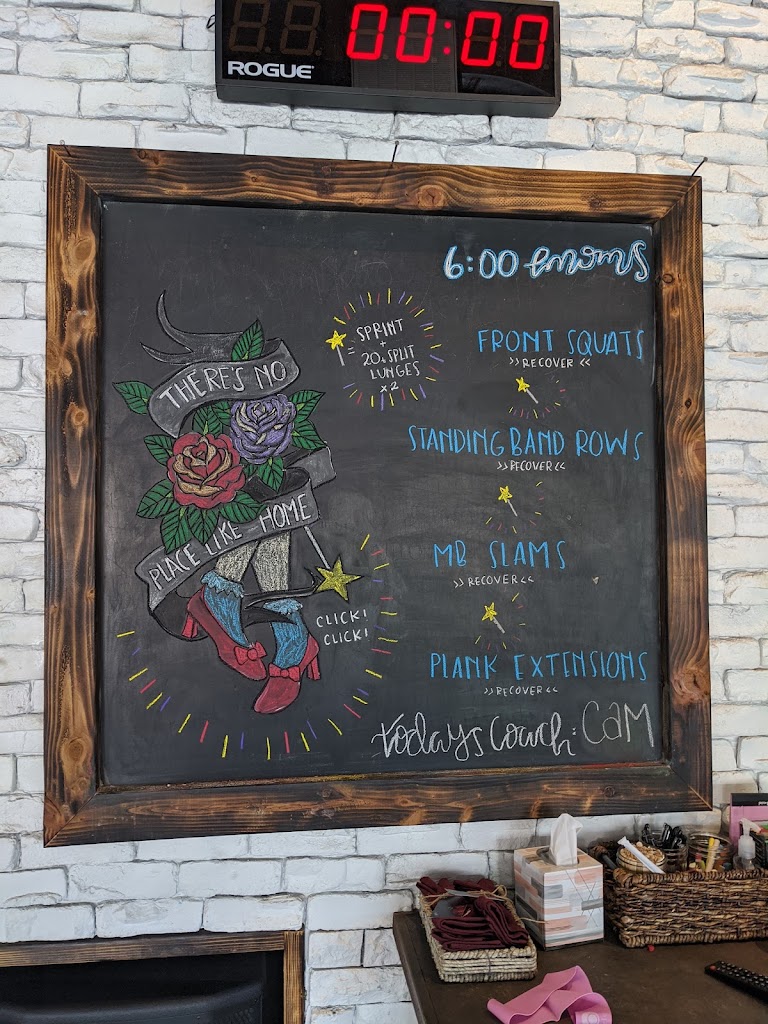 00:00
ROGUE
6:00 emoms
THERE'S NO
PLACE LIKE HOME
CLICK!
CLICK!
= SPRINT
+
20 SPLIT
LUNGES
x2
FRONT SQUATS
>> RECOVER <<
STANDING BAND ROWS
>> RECOVER <<
MB SLAMS
>> RECOVER <<
PLANK EXTENSIONS
>> RECOVER <<
todays Coach: CAM